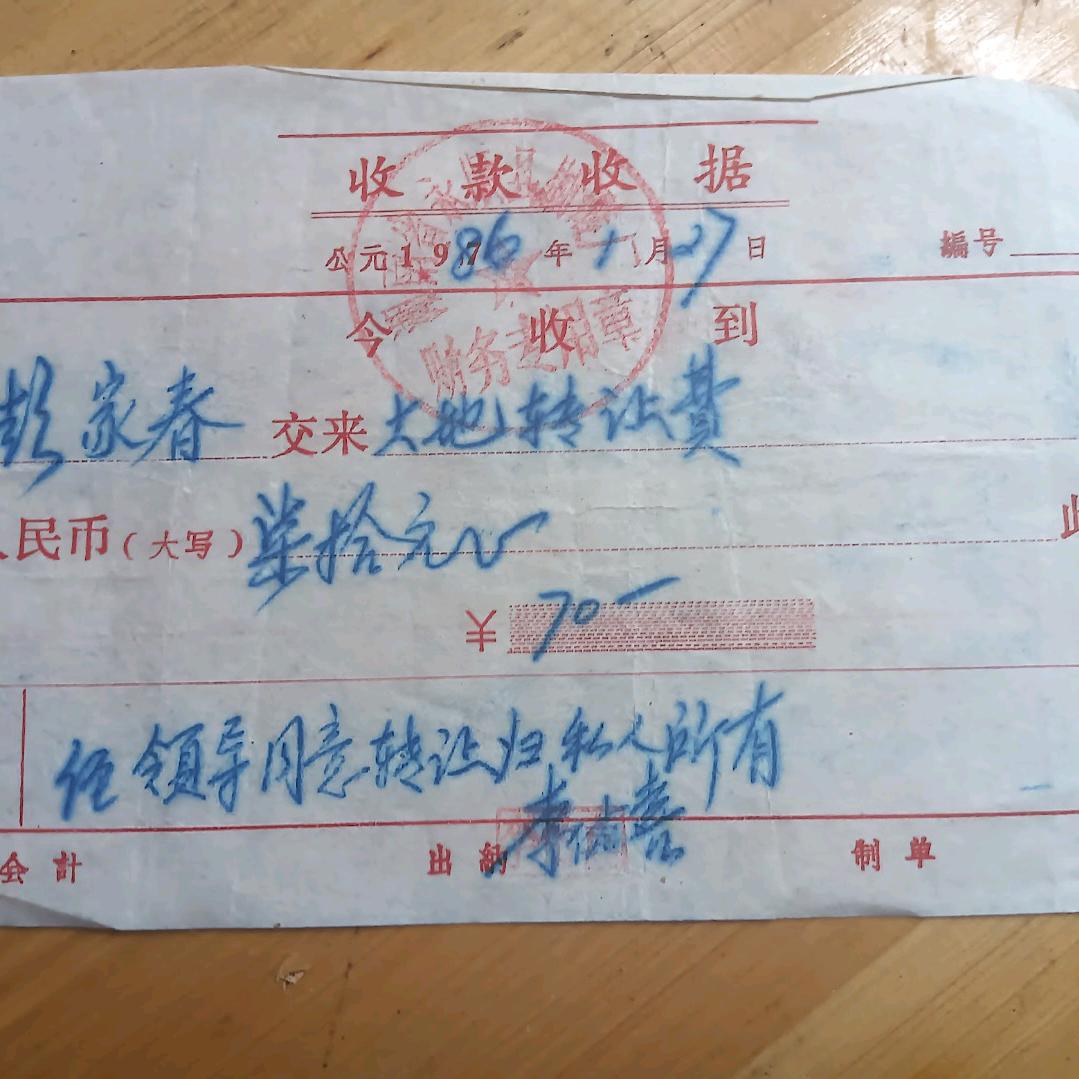 收款收据
公元1986年1月27日 编号
今收到
彭家春 交来 土地转让费
人民币(大写)柒拾元
¥ 70-
经领导同意转让归私人所有
会计 出纳 李 制单
财务专用章